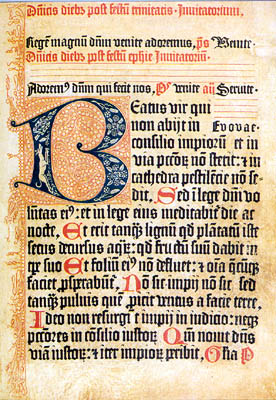 Dñicis dieb⁹ post festũ trinitatis · Inuitatorium.
Regem magnũ dñm venite adoremus, p̃s Venite·
Dñicis dieb⁹ post festũ ephie Inuitatoriũ·
Adorem⁹ dñm qui fecit nos, P̃s venite añ Seruite·
Beatus vir qui
non abijt in Evovae
consilio impiorũ et in
via pctõꝝ nõ stetit: ⁊ in
cathedra pestilẽcie nõ se-
dit, Sed ĩ lege dñi vo
lũtas ei⁹: et in lege eius meditabit̃ die ac
nocte, Et erit tanq̃ lignũ qd̃ plãtatũ iste
secus decursus aq̃ꝝ: qd̃ fructũ suũ dabit in
tp̃e suo Et foliũ ei⁹ nõ defluet: ⁊ oĩa q̃cũqꝫ
faciet ꝓsperabũt̃, Nõ sic impij nõ sic: sed
tanq̃ puluis quẽ ꝓicit ventus a facie terre,
Ideo non resurgũt impij in iudicio: neqꝫ
pctõres in cõsilio iustoꝝ Qm̃ nouit dñs
viã iustoꝝ: ⁊ iter impioꝝ peribit, Gl̃ia P